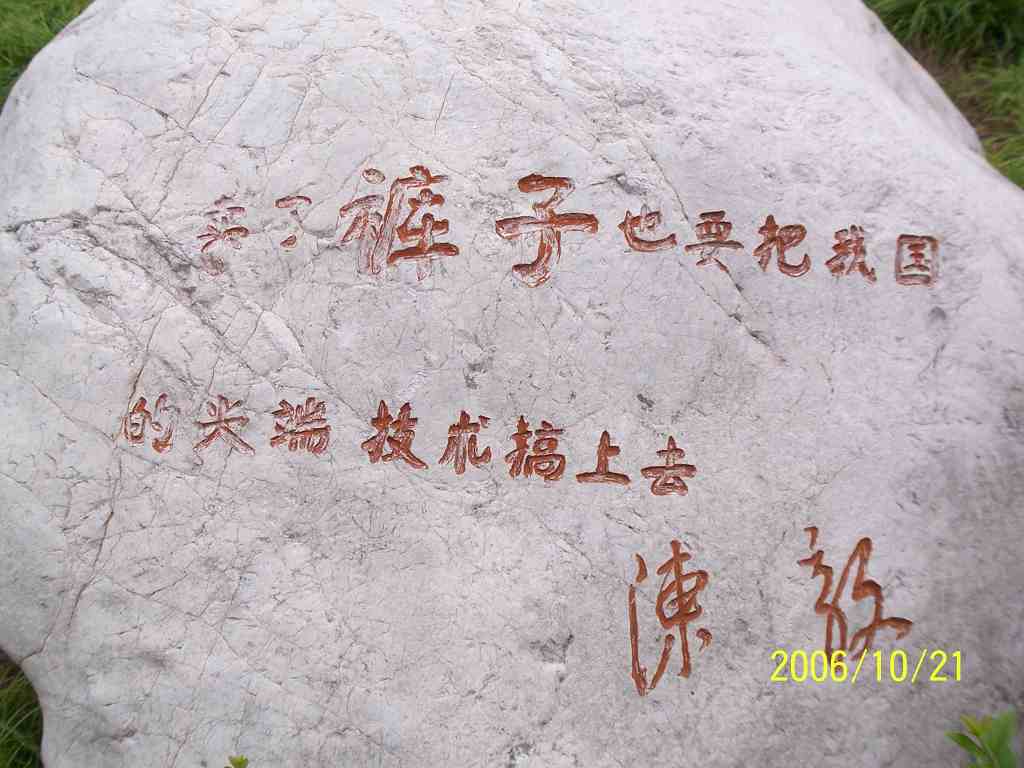 卖了裤子也要把我国
的尖端技术搞上去
陳毅
2006/10/21